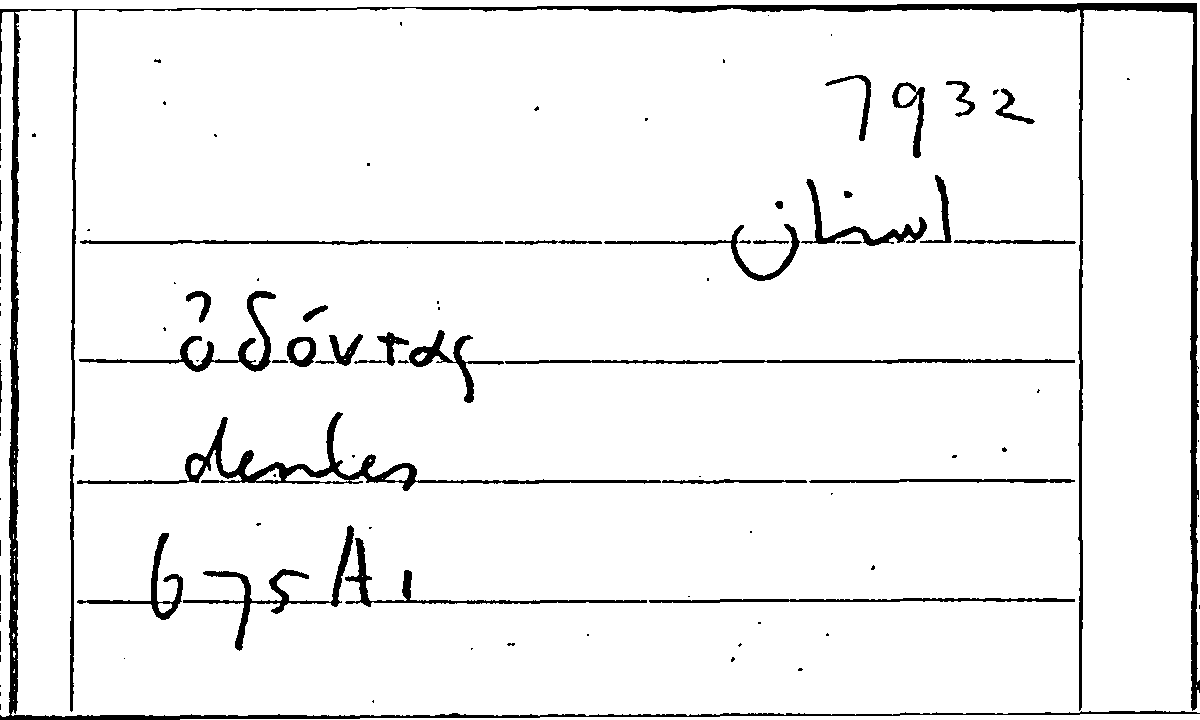 7932
اسنان
ὀδόντας
dentes
675 A 1